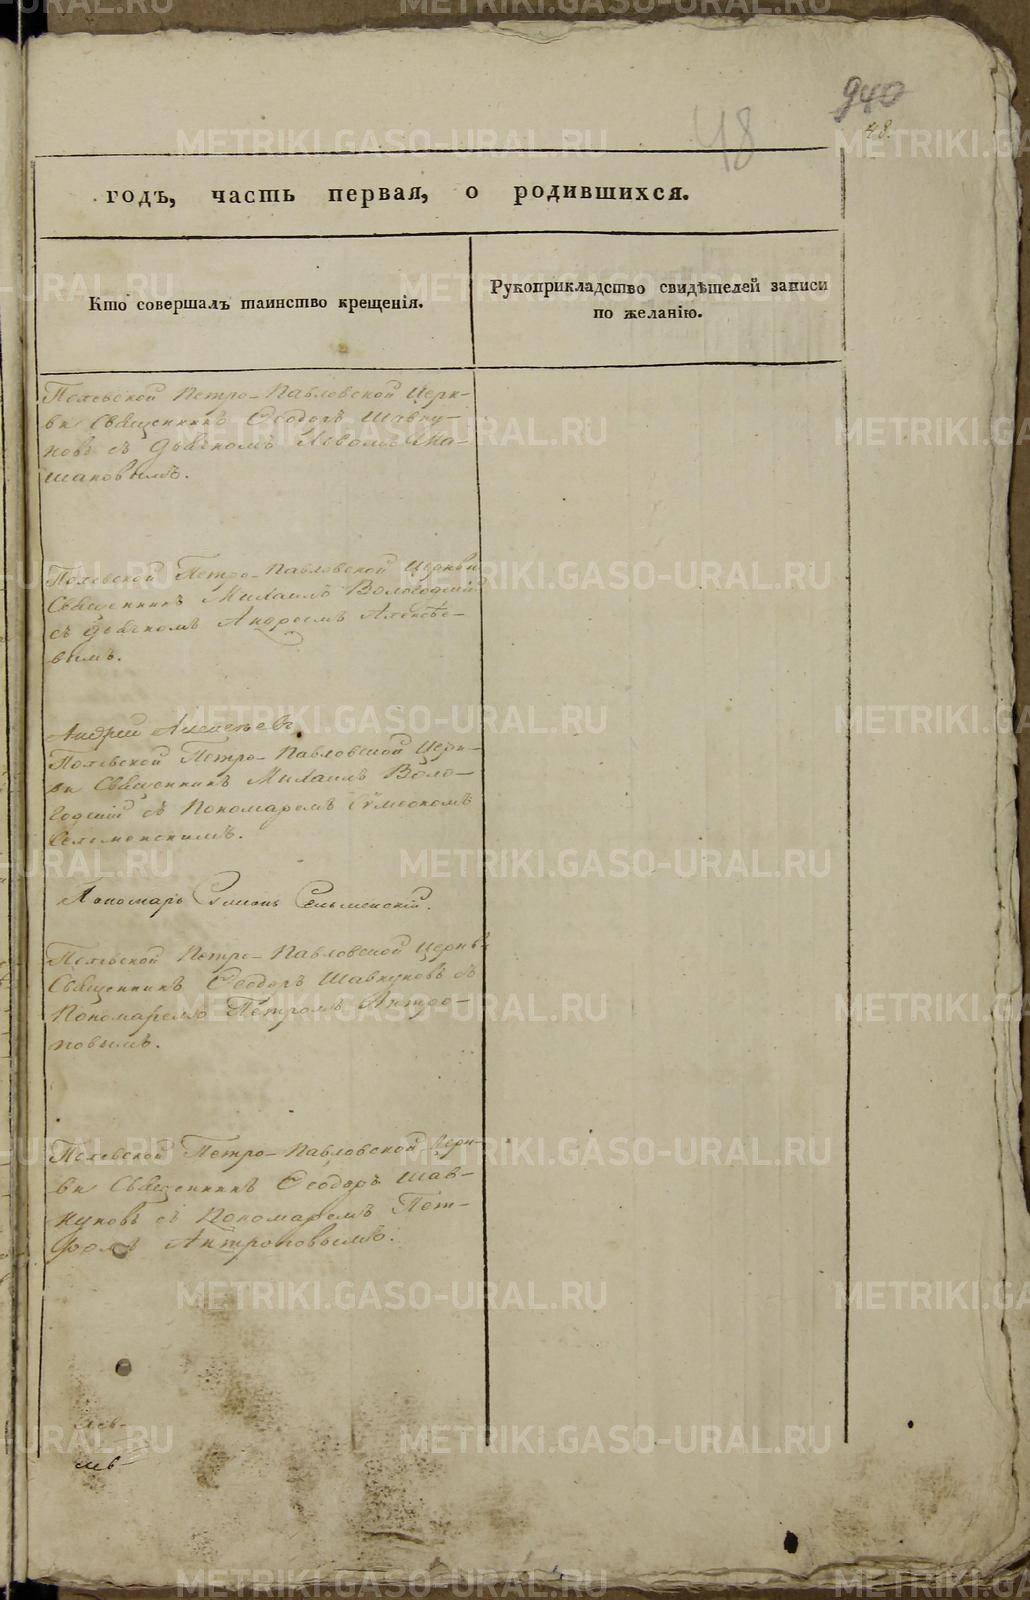 940
48
48.
годъ, часть первая, о родившихся.
Кто совершалъ таинство крещенія.
Рукоприкладство свидѣтелей записи
по желанію.
Полевской Петро-Павловской Церк-
ви Священникъ Ѳеодоръ Шавку-
новъ съ Дьячкомъ
шановымъ.
Полевской Петро-Павловской Церкви
Священникъ Михаилъ Вологодскій
съ Дьячкомъ Андреемъ Алексѣе-
вымъ.
Андрей Алексѣевъ
Полевской Петро-Павловской Церк-
ви Священникъ Михаилъ Воло-
годскій съ Пономаремъ Сѵмеономъ
Сельменскимъ.
Пономарь Сельменскій.
Полевской Петро-Павловской Церкви
Священникъ Ѳеодоръ Шавкуновъ съ
Пономаремъ Петромъ Антро-
повымъ.
Полевской Петро-Павловской Церк-
ви Священникъ Ѳеодоръ Шав-
куновъ съ Пономаремъ Пет-
ромъ Антроповымъ.
METRIKI.GASO-URAL.RU